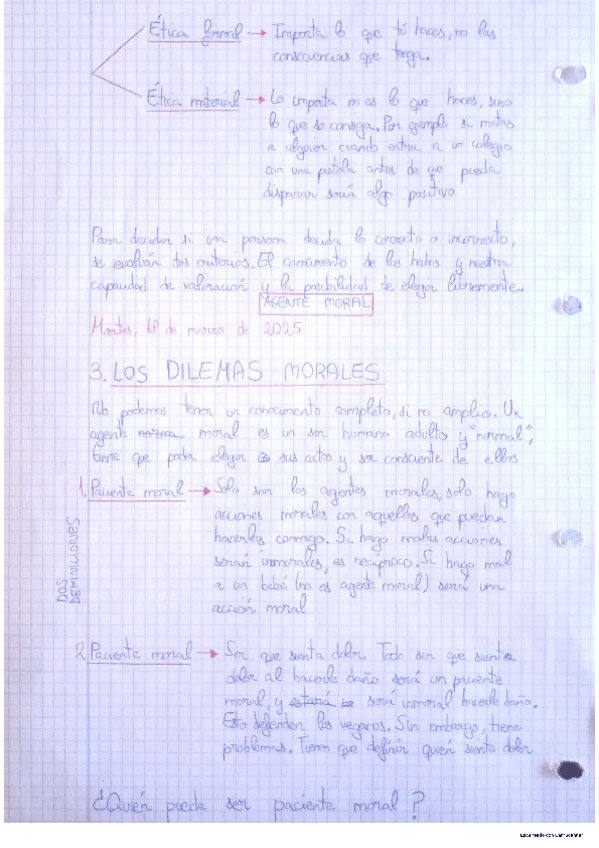 Ética formal → Importa lo que tú haces, no las
consecuencias que tenga.
Ética material → Lo importa no es lo que haces, sino
lo que se consiga. Por ejemplo si matas
a alguien cuando entra a un colegio
con una pistola antes de que pueda
disparar sería algo positivo
Para decidir si una persona decide lo correcto o incorrecto,
se evalúan dos criterios. El conocimiento de los hechos y nuestra
capacidad de valoración y la posibilidad de elegir libremente.
AGENTE MORAL
Martes, 18 de marzo de 2025
3. LOS DILEMAS MORALES
No podemos tener un conocimiento completo, si no amplio. Un
agente moral es un ser humano adulto y "normal",
tiene que poder elegir sus actos y ser consciente de ellos
1. Paciente moral → Solo son los agentes morales, solo hago
acciones morales con aquellos que puedan
hacerlas conmigo. Si hago malas acciones
serán inmorales, es recíproco. Si hago mal
a un bebé (no es agente moral) será una
acción moral.
DOS
2. Paciente moral → Ser que sienta dolor. Todo ser que sienta
dolor al hacerle daño será un paciente
moral, y estará será inmoral hacerle daño.
Esto defienden los veganos. Sin embargo, tiene
problemas. Tienen que definir quién siente dolor
¿Quién puede ser paciente moral?